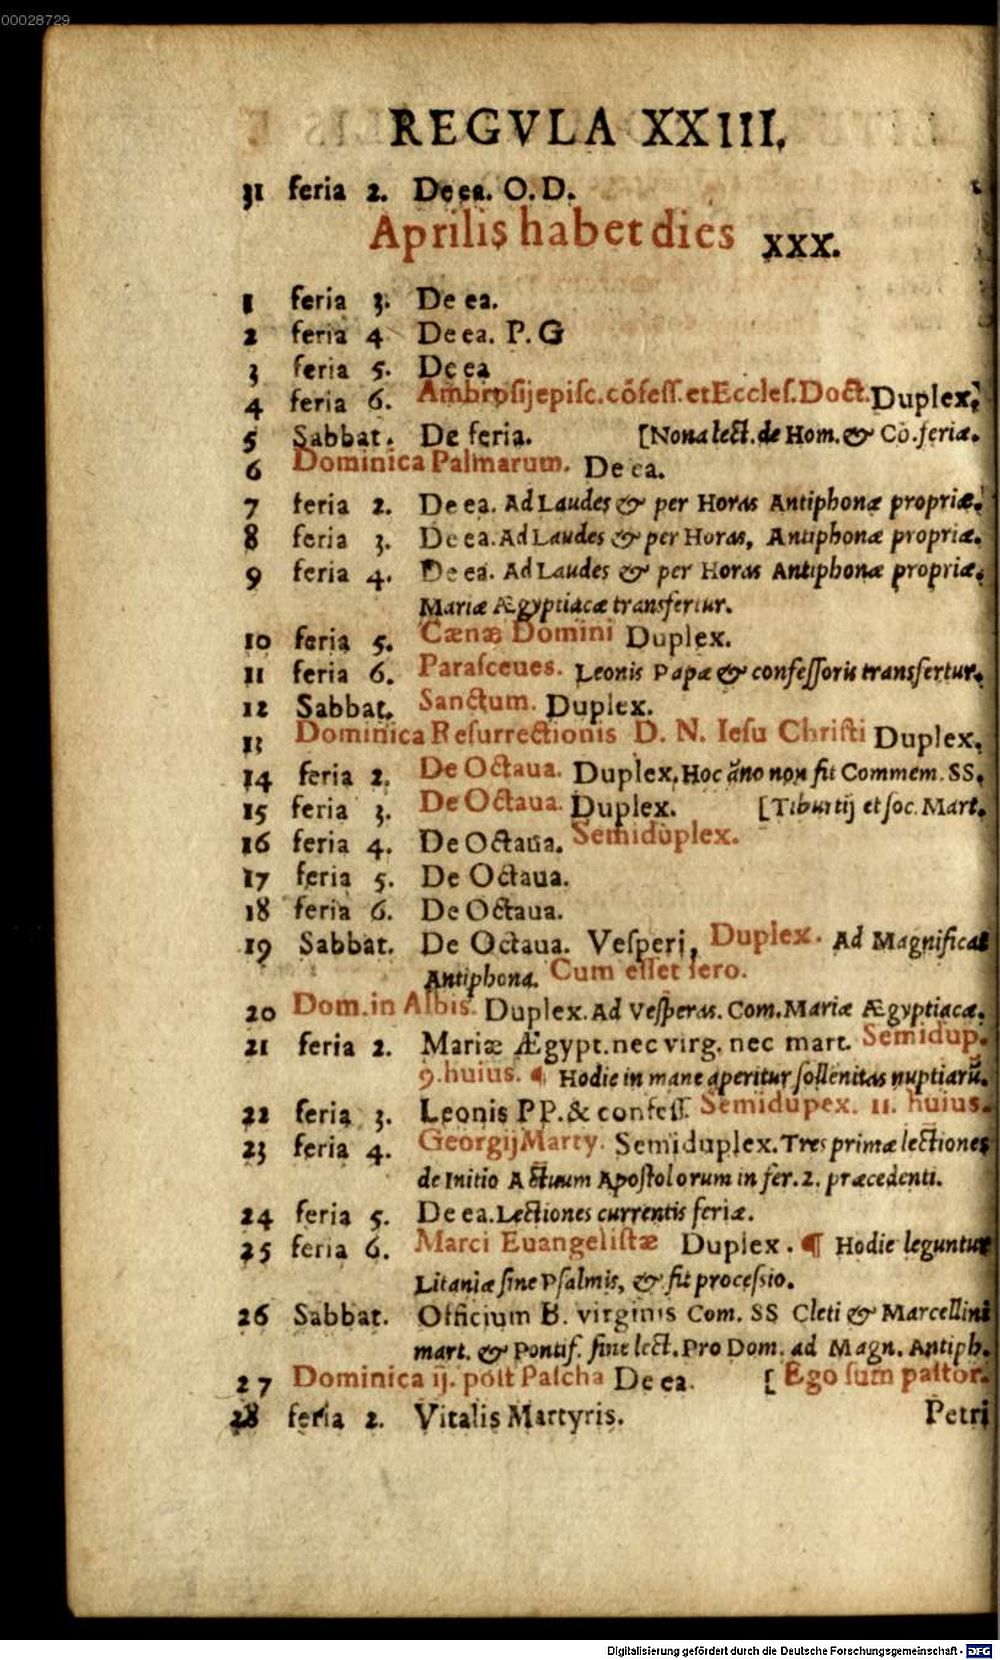 00028729
REGVLA XXIII.
31 feria 2. De ea. O. D.
Aprilis habet dies XXX.
1 feria 3. De ea.
2 feria 4 De ea. P. G
3 feria 5. De ea
4 feria 6. Ambrosij episc. cōfess. et Eccles. Doct. Duplex.
5 Sabbat. De feria. [Nona lect. de Hom. & Cō. feriæ.
6 Dominica Palmarum. De ea.
7 feria 2. De ea. Ad Laudes & per Horas Antiphonæ propriæ.
8 feria 3. De ea. Ad Laudes & per Horas, Antiphonæ propriæ.
9 feria 4. De ea. Ad Laudes & per Horas Antiphonæ propriæ.
Mariæ Ægyptiacæ transfertur.
10 feria 5. Cænæ Domini Duplex.
11 feria 6. Parasceues. Leonis Papæ & confessoris transfertur.
12 Sabbat. Sanctum. Duplex.
13 Dominica Resurrectionis D. N. Iesu Christi Duplex.
14 feria 2. De Octaua. Duplex. Hoc āno non fit Commem. SS.
15 feria 3. De Octaua. Duplex. [Tiburtij et soc. Mart.
16 feria 4. De Octaua. Semiduplex.
17 feria 5. De Octaua.
18 feria 6. De Octaua.
19 Sabbat. De Octaua. Vesperi, Duplex. Ad Magnificat
Antiphona. Cum esset sero.
20 Dom. in Albis. Duplex. Ad Vesperas. Com. Mariæ Ægyptiacæ.
21 feria 2. Mariæ Ægypt. nec virg. nec mart. Semidup.
9. huius. ¶ Hodie in mane aperitur sollenitas nuptiarū.
22 feria 3. Leonis PP. & confess. Semidupex. 11. huius.
23 feria 4. Georgij Marty. Semiduplex. Tres primæ lectiones
de Initio Actuum Apostolorum in fer. 2. præcedenti.
24 feria 5. De ea. Lectiones currentis feriæ.
25 feria 6. Marci Euangelistæ Duplex. ¶ Hodie leguntur
Litaniæ sine Psalmis, & fit processio.
26 Sabbat. Officium B. virginis Com. SS Cleti & Marcellini
mart. & Pontif. sine lect. Pro Dom. ad Magn. Antiph.
27 Dominica ij. post Pascha De ea. [Ego sum pastor.
28 feria 2. Vitalis Martyris. Petri
Digitalisierung gefördert durch die Deutsche Forschungsgemeinschaft - DFG